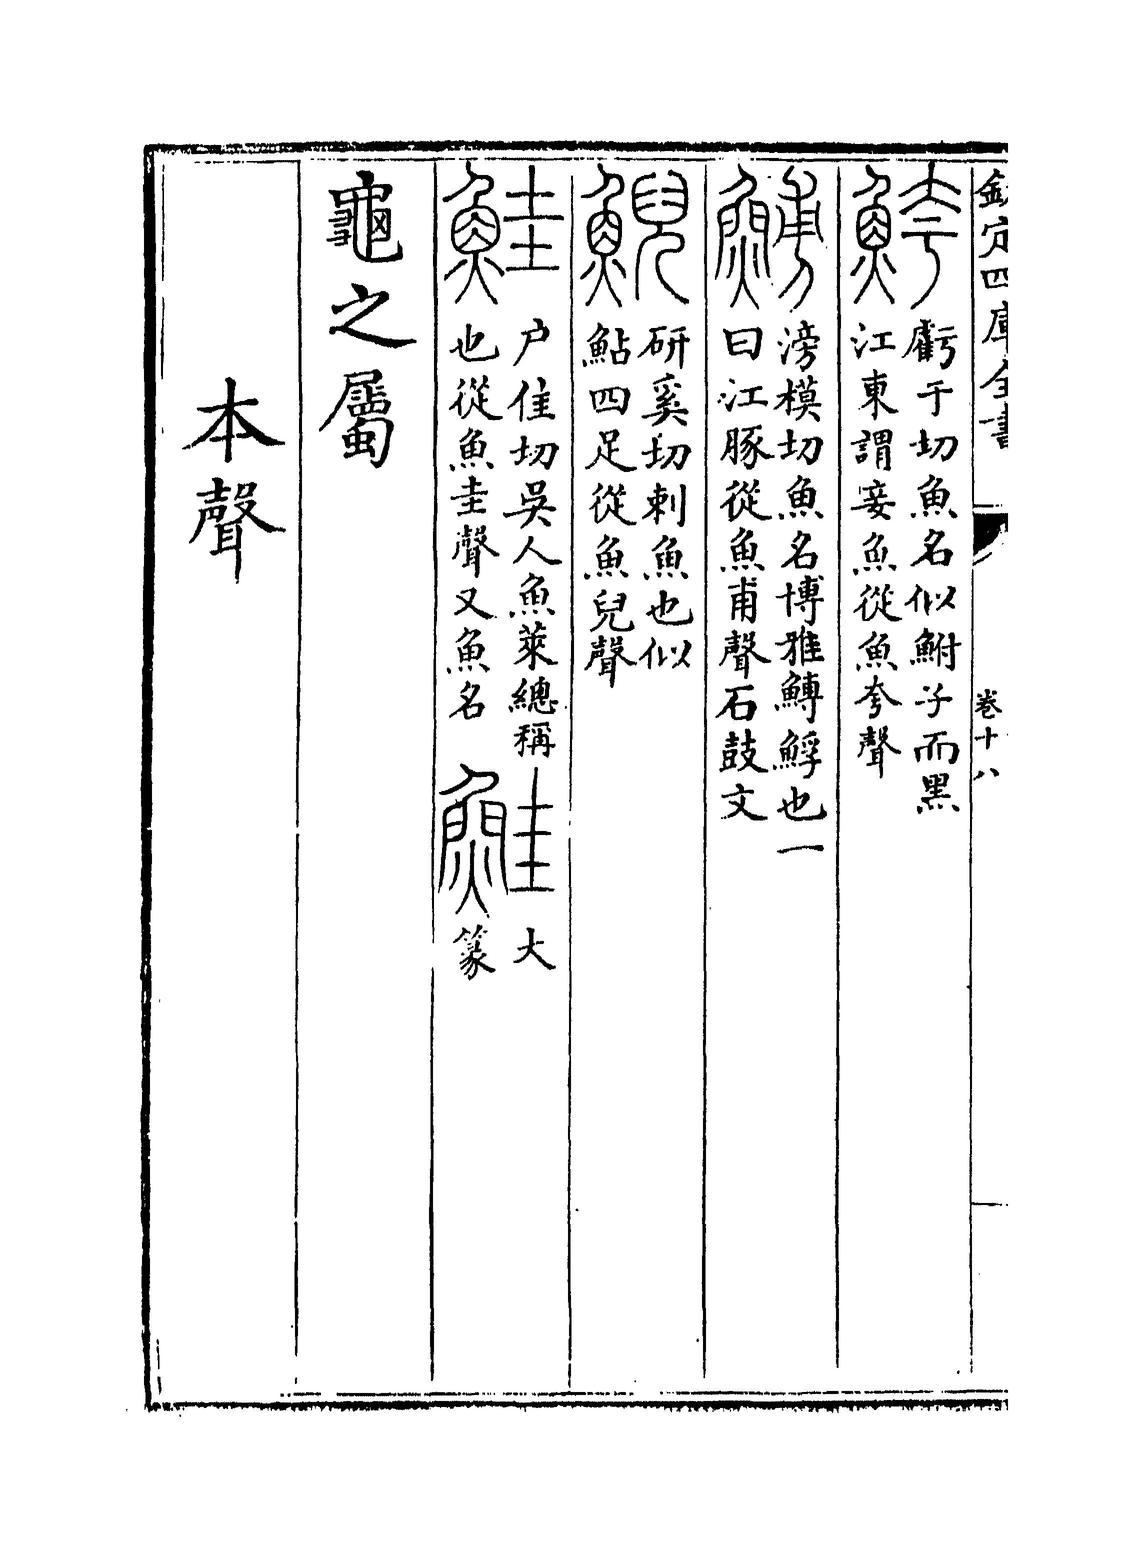 欽定四庫全書
卷十八
䠸于切魚名似鮒子而黑
江東謂妾魚從魚夸聲
滂模切魚名博雅鱄鯙也一
曰江豚從魚甫聲石鼓文
鯢
研奚切刺魚也似
鮎四足從魚兒聲
鮭
户佳切吳人魚菜總稱
也從魚圭聲又魚名
鮭
大
篆
龜之屬
本聲